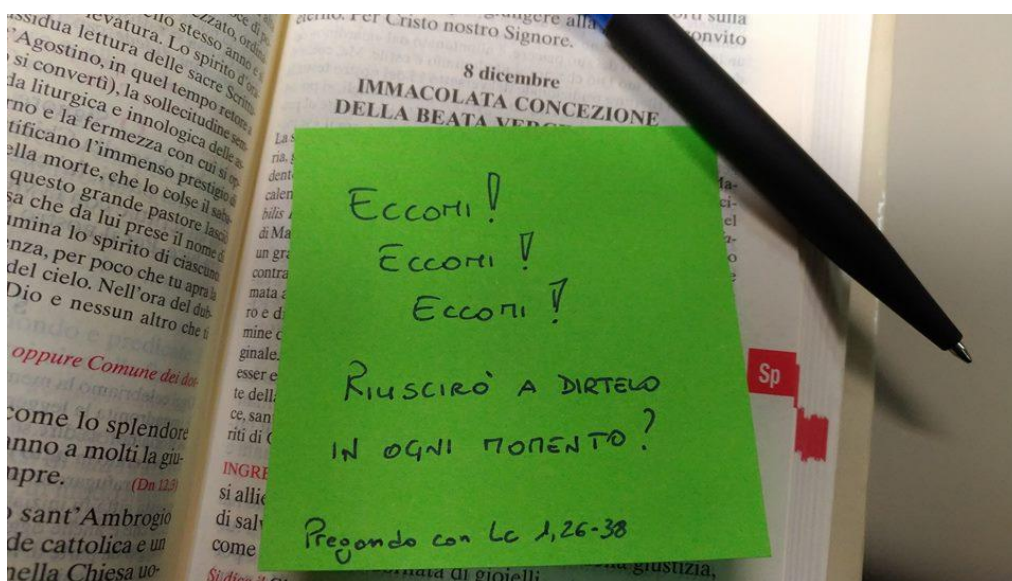 ssidua lettura delle sacre
'Agostino, in quel tempo retore
si convertì), la sollecitudine
da liturgica e innologica delle
rno e la fermezza con cui si
tificano l'immenso prestigio
ella morte, che lo colse il
questo grande pastore
sa che da lui prese il nome
umina lo spirito di ciascuno
enza, per poco che tu apra
del cielo. Nell'ora del dub-
Dio e nessun altro che ti
oppure Comune dei
come lo splendore
anno a molti la giu-
mpre. (Dn 12,3)
sant'Ambrogio
de cattolica e un
nella Chiesa uo-
eterno. Per Cristo nostro Signore.
8 dicembre
IMMACOLATA CONCEZIONE
DELLA BEATA
ECCOMI!
ECCOMI!
ECCOMI!
RIUSCIRÒ A DIRTELO
IN OGNI MOMENTO?
Pregando con Lc 1,26-38
Sp
si allie
di sal
come
di gioielli
giustizia,